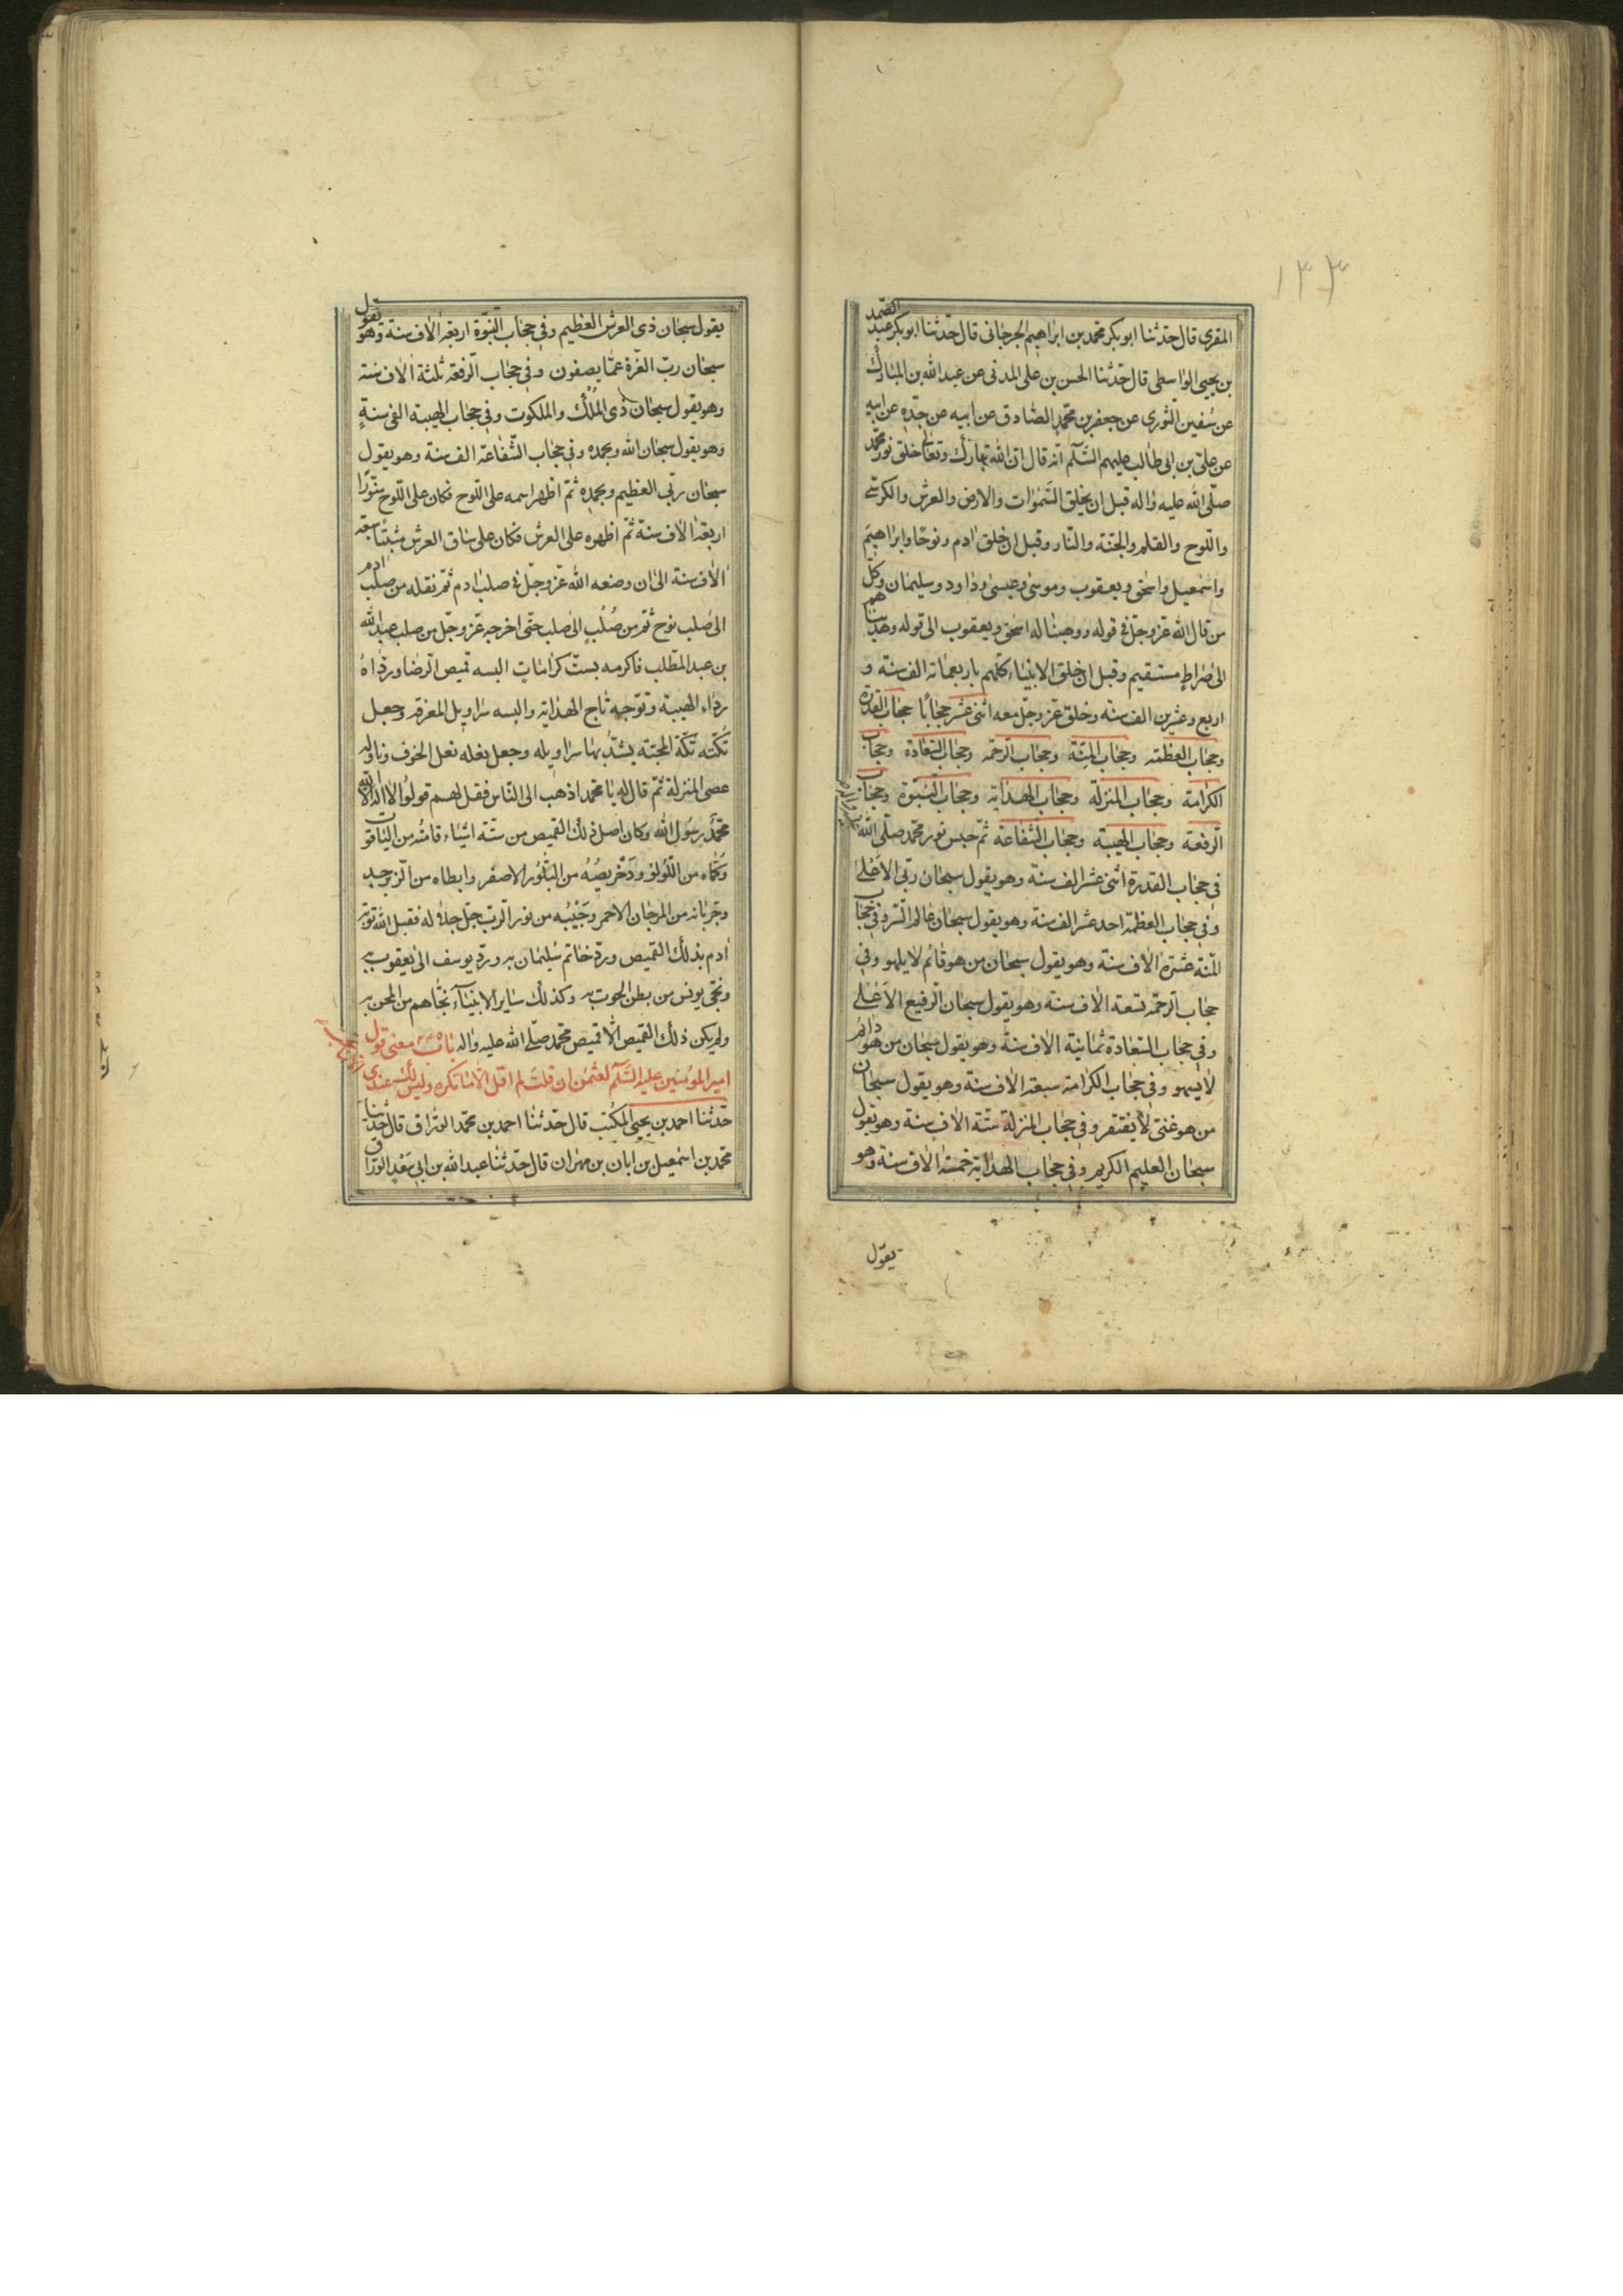 ١٣٣
المقری قال حدّثنا ابو بکر محمد بن ابراهیم الجرجانی قال حدّثنا ابو بکر عبد الصّمد
بن یحیی الواسطی قال حدّثنا الحسن بن علی المدنی عن عبد الله بن المبارک
عن سُفین الثوری عن جعفر بن محمّد الصّادق عن ابیه عن جدّه عن ابیه
عن علیّ بن ابی طالب علیهم السَّلَم انّه قال انّ الله تبارک وتعالی خلق نور محمّد
صلّی الله علیه واله قبل ان یخلق السّموات والارض والعرش والکرسّی
واللّوح والقلم والجنّة والنّار وقبل ان خلق ادم ونوحًا وابراهیم
واسمعیل واسحق ویعقوب وموسی وعیسی وداود وسلیمان وکلّ
من قال الله عزّوجلّ فی قوله ووهبنا له اسحق ویعقوب الی قوله وهدیناهم
الی صراطٍ مستقیم وقبل ان خلق الانبیاء کلّهم باربعمائه الف سنة و
اربع وعشرین الف سنه وخلق عزّوجلّ معه اثنی عشر حجابًا حجاب القدرة
وحجاب العظمة وحجاب المنّة وحجاب الرّحمة وحجاب السّعادة وحجاب
الکرامة وحجاب المنزلة وحجاب الهدایة وحجاب النّبوّة وحجاب
الرّفعة وحجاب الهیبة وحجاب الشّفاعة ثمّ حبس نور محمّد صلّی الله
فی حجاب القدرة اثنی عشر الف سنة وهو یقول سبحان ربّی الاعلی
وفی حجاب العظمة احد عشر الف سنة وهو یقول سبحان عالم السّر وفی حجاب
المنّة عشرة الاف سنة وهو یقول سبحان من هو قائم لا یلهو وفی
حجاب الرّحمة تسعة الاف سنة وهو یقول سبحان الرّفیع الاعلی
وفی حجاب السّعادة ثمانیة الاف سنة وهو یقول سبحان من هو دائم
لا یسهو وفی حجاب الکرامة سبعة الاف سنة وهو یقول سبحان
من هو غنیّ لا یفتقر وفی حجاب المنزلة ستّة الاف سنة وهو یقول
سبحان العلیم الکریم وفی حجاب الهدایة خمسة الاف سنة وهو
یقول
یقول سبحان ذی العرش العظیم وفی حجاب النّبوّة اربعة الاف سنة وهو یقول
سبحان ربّ العزّة عمّا یصفون وفی حجاب الرّفعة ثلثة الاف سنة
وهو یقول سبحان ذی المُلک والملکوت وفی حجاب الهیبة الفی سنةٍ
وهو یقول سبحان الله وبحمده وفی حجاب الشّفاعة الف سنة وهو یقول
سبحان ربّی العظیم وبحمده ثمّ اظهر اسمه علی اللّوح فکان علی اللّوح منوّرًا
اربعة الاف سنة ثمّ اظهره علی العرش فکان علی ساق العرش مثبتا سبعة
الاف سنة الی ان وضعه الله عزّوجلّ فی صلب ادم ثمّ نقله من صلب ادم
الی صلب نوح ثمّ من صُلبٍ الی صلب حتی اخرجه عزّوجلّ من صلب عبد الله
بن عبد المطّلب فاکرمه بستّ کرامات البسه قمیص الرّضا وردّاه
رداء الهیبة وتوّجه تاج الهدایة والبسه سراویل المعرفة وجعل
تُکّته تکّة المحبّة یشدّ بها سراویله وجعل نعله نعل الخوف وناوله
عصی المنزلة ثمّ قال له یا محمّد اذهب الی النّاس فقل لهم قولوا لا اله الّا الله
محمّد رسول الله وکان اصل ذلک القمیص من ستّة اشیاء قامته من الیاقوت
وکمّاه من اللّولو ودخریصُهُ من البلّور الاصفر وابطاه من الزّبرجد
وجربانه من المرجان الاحمر وجَیبُه من نور الرّب جلّ جلاله فقبل الله توبة
ادم بذلک القمیص وردّ خاتم سلیمان به وردّ یوسف الی یعقوب به
ونجّی یونس من بطن الحوت به وکذلک سایر الانبیاء نجّاهم من المحن به
ولم یکن ذلک القمیص الّا قمیص محمّد صلّی الله علیه واله باب معنی قول
امیر المومنین علیه السَّلَم لعثمن ان قلت لم اقل الّا ما تکره ولیس لک عندی
حدّثنا احمد بن یحیی المکتب قال حدّثنا احمد بن محمّد الورّاق قال حدّثنا
محمّد بن اسمعیل بن ابان بن مهران قال حدّثنا عبد الله بن ابی سَعْدٍ الورّاق